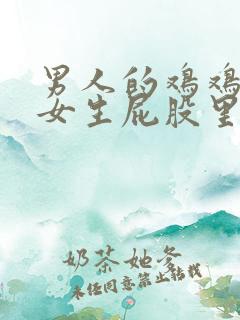 男人的鸡鸡
女生屁股里
奶茶她爹
未经同意禁止转载